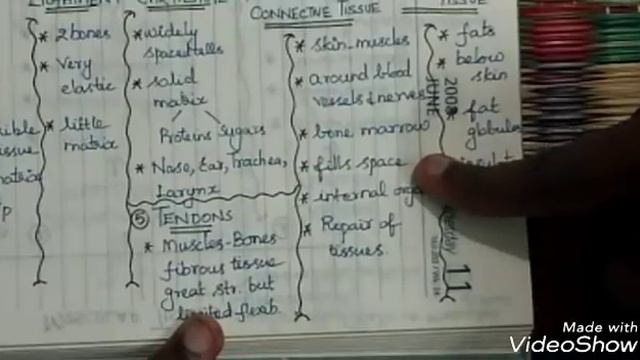 LIGAMENT
* 2 bones
* Very
elastic
* little
matrix
* widely
spaced cells
* solid
matrix
Proteins Sugars
* Nose, Ear, Trachea,
Larynx
⑤ TENDONS
* Muscles-Bones
fibrous tissue
great str. but
limited flexb.
CONNECTIVE TISSUE
* skin-muscles
* around blood
vessels & nerves
* bone marrow
* fills space
* internal orga
* Repair of
tissues.
TISSUE
* fats
* below
skin
* fat
globules
2009
JUNE
11
Made with
VideoShow